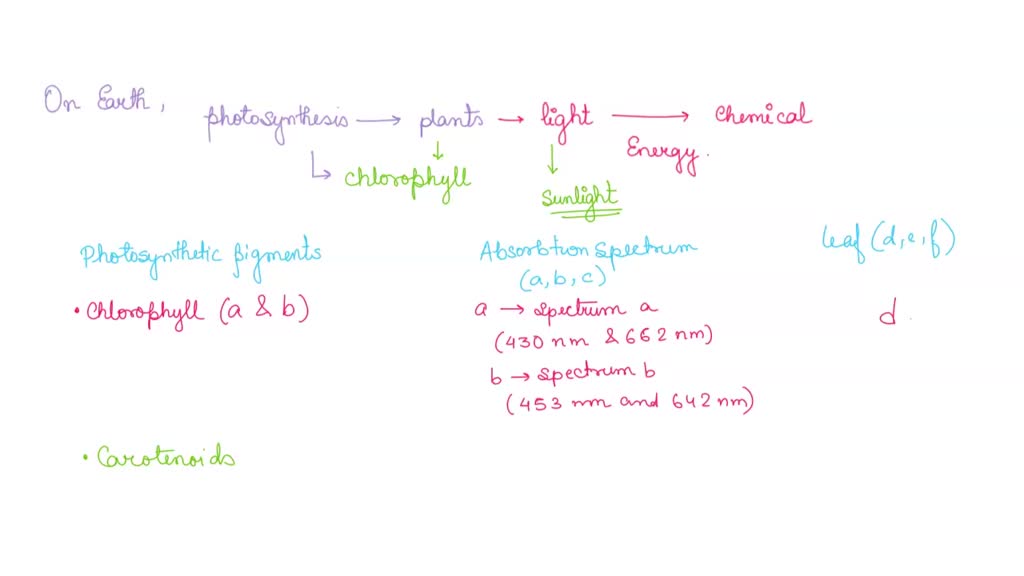 On Earth, photosynthesis → plants → light → chemical
Energy.
↳ chlorophyll
↓ ↓
Sunlight
Photosynthetic pigments Absorbtion spectrum leaf (d, e, f)
(a, b, c)
• Chlorophyll (a & b) a → spectrum a d
(430 nm & 662 nm)
b → spectrum b
(453 nm and 642 nm)
• Carotenoids